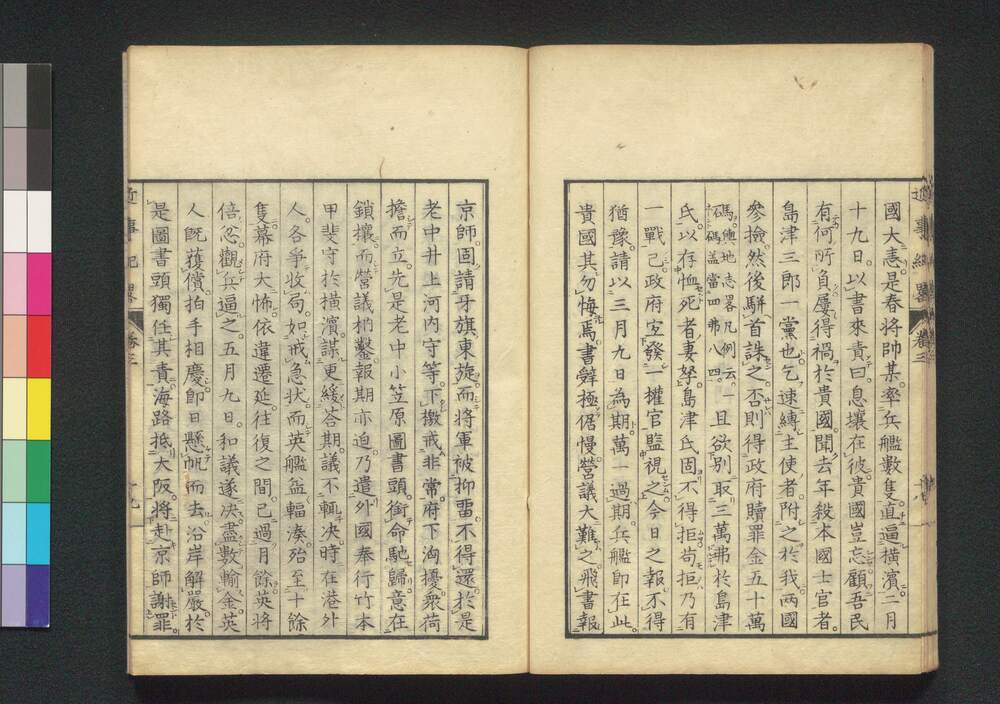 國大恚是春将帥某率兵艦數隻直逼橫濱二月
十九日以書來責曰息壤在彼貴國豈忘顧吾民
有何所負屢得禍於貴國聞去年殺本國士官者
島津三郎一黨也乞速縛主使者附之於我兩國
參撿然後駢首誅之否則得政府贖罪金五十萬
碼輿地志畧凡例云一
碼蓋當四弗八四
且欲別取三萬弗於島津
氏以存恤死者妻孥島津氏固不得拒苟拒乃有
一戰已政府宜發一權官監視之今日之報不得
猶豫請以三月九日為期萬一過期兵艦即在此
貴國其勿悔焉書辭極倨慢營議大難之飛書報
京師固請牙旗東旋而将軍被抑畱不得還於是
老中井上河内守等下檄戒非常府下洶擾衆荷
擔而立先是老中小笠原圖書頭銜命馳歸意在
鎖攘而營議枘鑿報期亦迫乃遣外國奉行竹本
甲斐守於橫濱謀更緩答期議不輒决時在港外
人各爭收局如戒急状而英艦益輻湊殆至十餘
隻幕府大怖依違遷延往復之間已過月餘英将
倍忿觀兵逼之五月九日和議遂决盡數輸金英
人既獲償拍手相慶即日懸帆而去沿岸解嚴於
是圖書頭獨任其責海路抵大阪将赴京師謝罪
近事紀畧
卷三